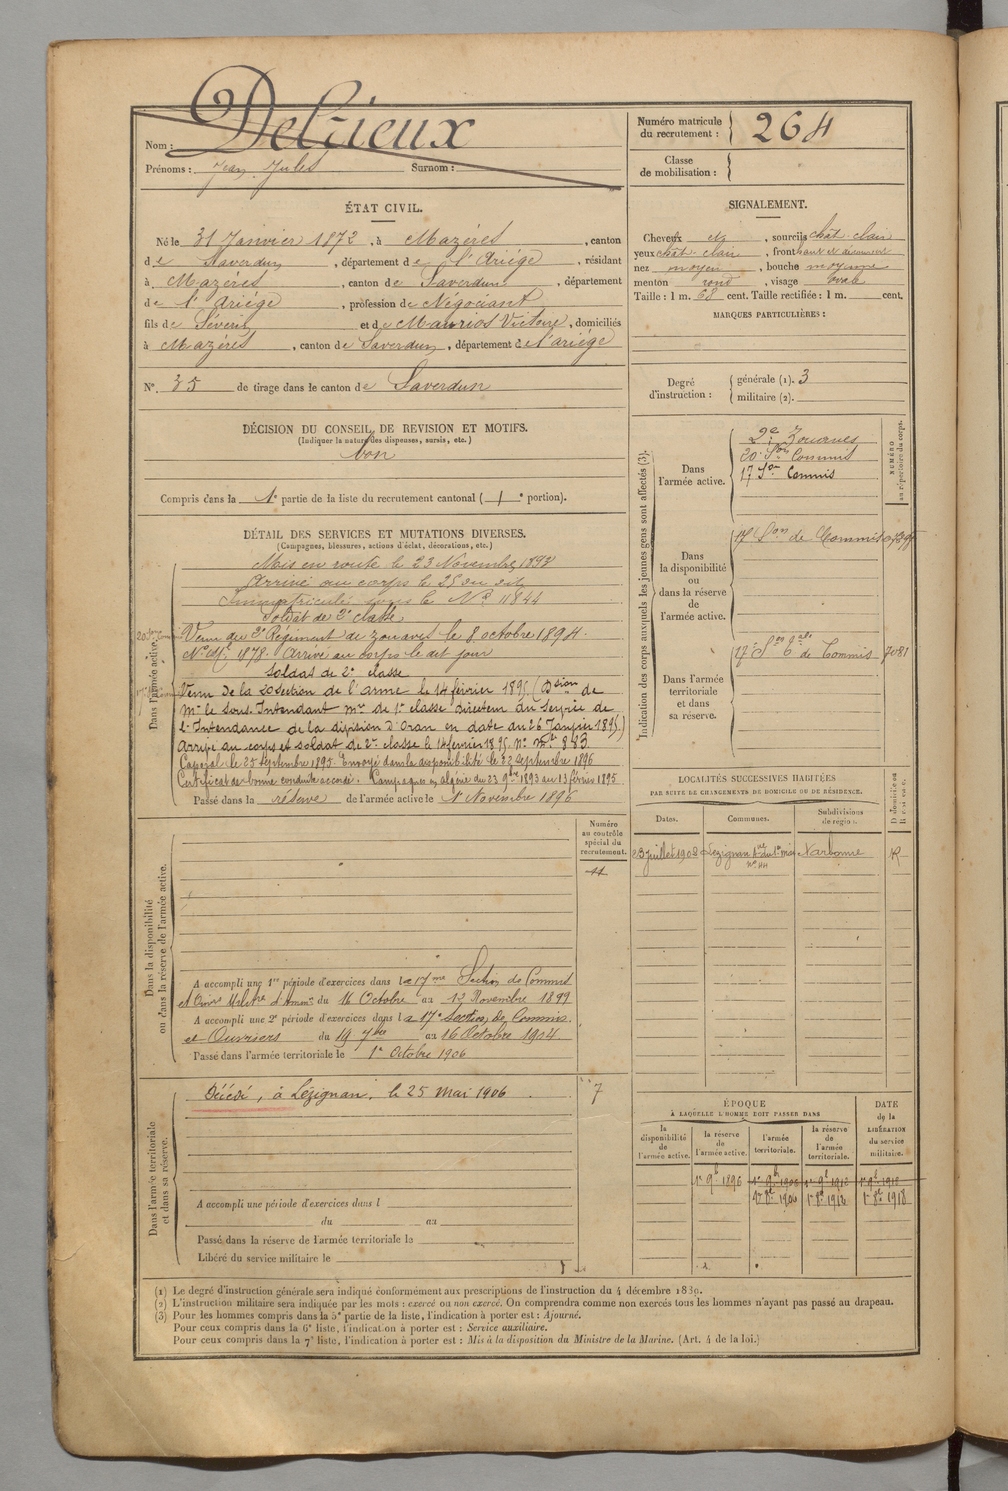 Nom : Delrieux
Prénoms : Jean Jules Surnom :
ÉTAT CIVIL.
Né le 31 Janvier 1872, à Mazères, canton
de Saverdun, département de l'Ariége, résidant
à Mazères, canton de Saverdun, département
de l'Ariége, profession de Négociant
fils de Séverin et de Maurios Victoire, domiciliés
à Mazères, canton de Saverdun, département de l'ariége
N°. 35 de tirage dans le canton de Saverdun
DÉCISION DU CONSEIL DE REVISION ET MOTIFS.
(Indiquer la nature des dispenses, sursis, etc.)
bon
Compris dans la 1e partie de la liste du recrutement cantonal (1e portion).
DÉTAIL DES SERVICES ET MUTATIONS DIVERSES.
(Campagnes, blessures, actions d'éclat, décorations, etc.)
Dans l'armée active.
Mis en route le 23 Novembre 1893
Arrivé au corps le 25 du dit
Immatriculé sous le N° 11844
Soldat de 2e classe
Venu du 2e Régiment de zouaves le 8 octobre 1894.
N° Mle 1878. Arrivé au corps le dit jour
Soldat de 2e classe
Venu de la 20 section de l'arme le 14 février 1895 (Don de
Mr le Sous-Intendant mre de 1e classe directeur du Service de
l'Intendance de la division d'Oran en date du 26 Janvier 1895)
Arrivé au corps et soldat de 2e classe le 14 février 1895 N° mle 883.
Caporal le 25 septembre 1895. Envoyé dans la disponibilité le 22 septembre 1896
Certificat de bonne conduite accordé. Campagnes en algérie du 23 9bre 1893 au 13 février 1895.
Passé dans la réserve de l'armée active le 1 Novembre 1896
Dans la disponibilité
ou dans la réserve de l'armée active.
Numéro
au contrôle
spécial du
recrutement.
A accompli une 1re période d'exercices dans la 17me Section de Commis
du 16 Octobre au 12 Novembre 1899
A accompli une 2e période d'exercices dans la 17e Section de Commis
et Ouvriers du 19 7bre au 16 Octobre 1904.
Passé dans l'armée territoriale le 1er Octobre 1906
Dans l'armée territoriale
et dans sa réserve.
Décédé, à Lézignan, le 25 mai 1906
7
A accompli une période d'exercices dans l
du au
Passé dans la réserve de l'armée territoriale le
Libéré du service militaire le
Numéro matricule
du recrutement : 264
Classe
de mobilisation :
SIGNALEMENT.
Cheveux et, sourcils chât. clair
yeux chât. clair, front haut et découvert
nez moyen, bouche moyenne
menton rond, visage ovale
Taille : 1 m. 68 cent. Taille rectifiée : 1 m. cent.
MARQUES PARTICULIÈRES :
Degré
d'instruction :
générale (1). 3
militaire (2).
Indication des corps auxquels les jeunes gens sont affectés (3).
NUMÉRO
au répertoire du corps.
Dans
l'armée active.
2e Zouaves
20 Son Commis
17 Son Commis
Dans
la disponibilité
ou
dans la réserve
de
l'armée active.
17 Son de Commis
Dans l'armée
territoriale
et dans
sa réserve.
17 Son Tale de Commis 7081
LOCALITÉS SUCCESSIVES HABITÉES
PAR SUITE DE CHANGEMENTS DE DOMICILE OU DE RÉSIDENCE.
Dates.
Communes.
Subdivisions
de région.
23 juillet 1902 Lezignan Narbonne R
ÉPOQUE
À LAQUELLE L'HOMME DOIT PASSER DANS
la
disponibilité
de
l'armée active.
la réserve
de
l'armée active.
l'armée
territoriale.
la réserve
de
l'armée
territoriale.
DATE
de la
LIBÉRATION
du service
militaire.
1er 9b 1896 1er 9b 1906 1er 9b 1912 1er 9b 1918
1er 8b 1906 1er 8b 1912 1er 8b 1918
(1) Le degré d'instruction générale sera indiqué conformément aux prescriptions de l'instruction du 4 décembre 1889.
(2) L'instruction militaire sera indiquée par les mots : exercé ou non exercé. On comprendra comme non exercés tous les hommes n'ayant pas passé au drapeau.
(3) Pour les hommes compris dans la 5e partie de la liste, l'indication à porter est : Ajourné.
Pour ceux compris dans la 6e liste, l'indication à porter est : Service auxiliaire.
Pour ceux compris dans la 7e liste, l'indication à porter est : Mis à la disposition du Ministre de la Marine. (Art. 4 de la loi.)